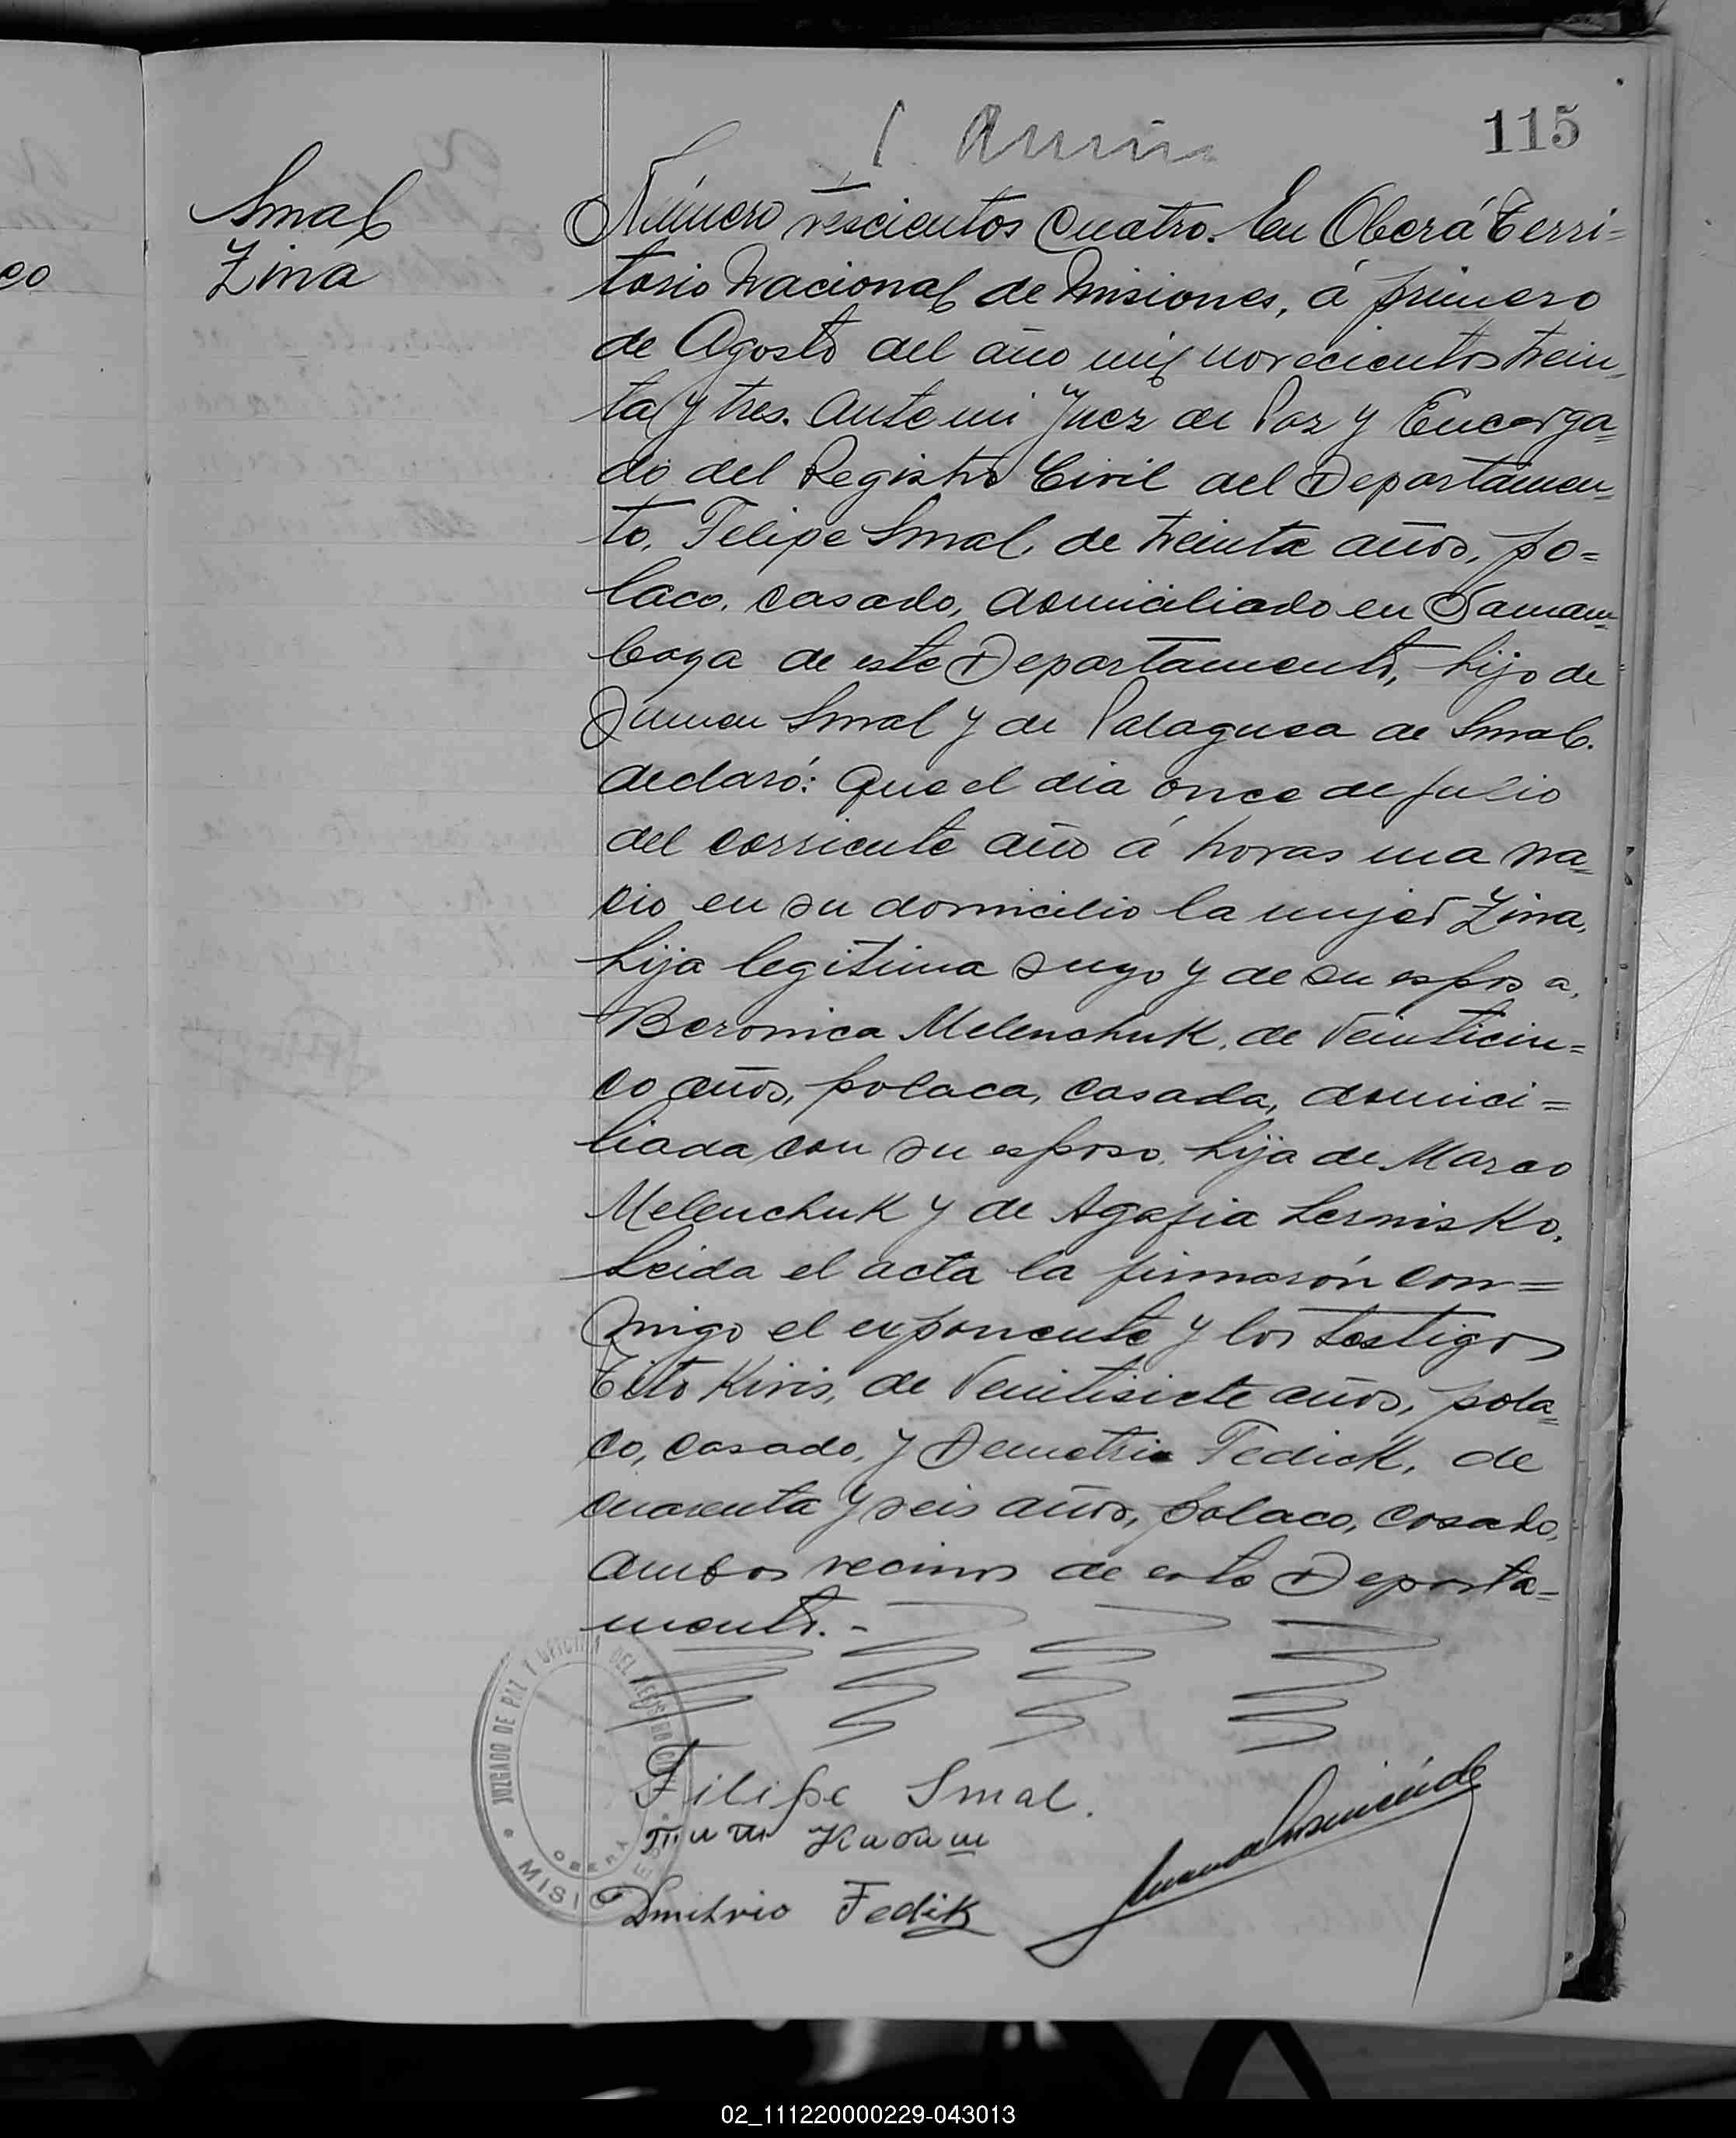 115
Smal
Zina
co
Número Trescientos cuatro. En Oberá Terri=
torio Nacional de Misiones, á primero
de Agosto del año mil novecientos trein_
ta y tres. Ante mi Juez de Paz y Encarga=
do del Registro Civil del Departamen=
to, Felipe Smal, de treinta años, po=
laco, casado, domiciliado en Samam=
baya de este Departamento, hijo de
Smal y de Palaguea de Smal.
declaró: Que el dia once de Julio
del corriente año á horas una na=
cio en su domicilio la mujer Zina,
hija legitima suya y de su esposa,
Beronica Melenchuk, de Veinticin=
co años, polaca, casada, domici=
liada con su esposo, hija de Marco
Melenchuk y de Agafia Lernisko.
Leida el acta la firmarón con=
migo el exponente y los testigos
Tito Kiris, de Veintisiete años, pola=
co, casado, y Demetrio Fedick, de
cuarenta y seis años, polaco, casado,
ambos vecinos de este Departa=
mento.-
JUZGADO DE PAZ Y OFICINA DEL REGISTRO CIVIL
OBERA
MISIONES
Filipe Smal.
Dmitrio Fedik
02_111220000229-043013